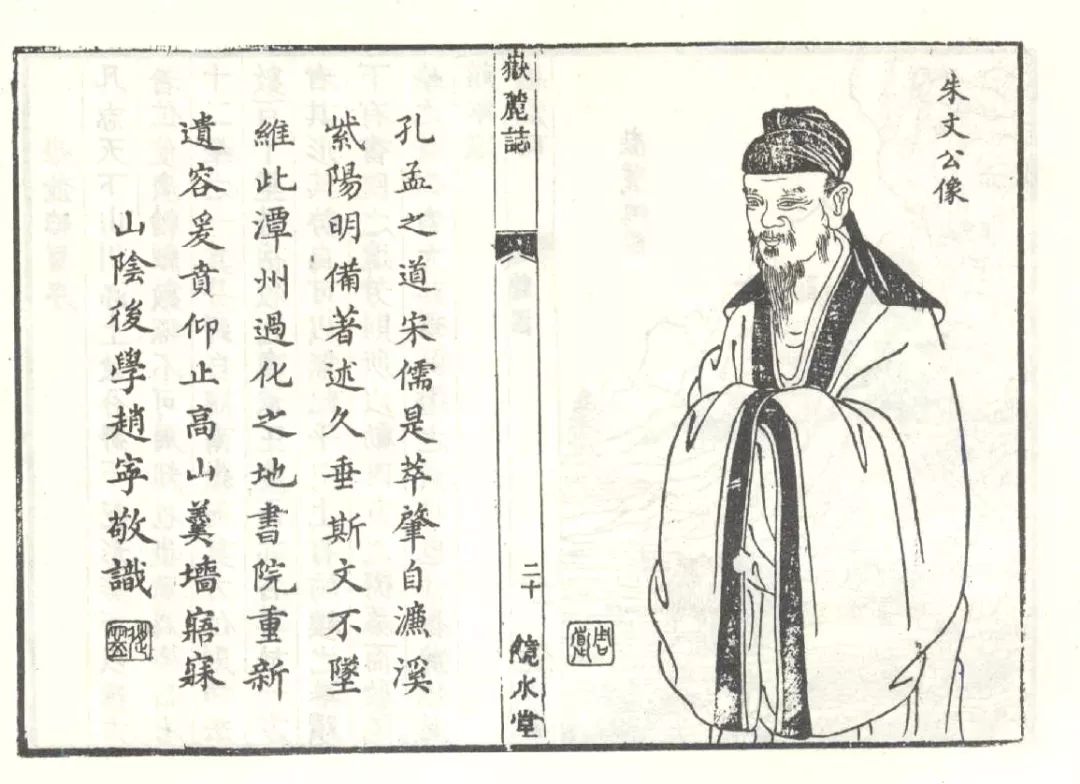 朱文公像
嶽麓誌
二十
鏡水堂
孔孟之道宋儒是萃肇自濂溪
紫陽明備著述久垂斯文不墜
維此潭州過化之地書院重新
遺容爰賁仰止高山羹墻寤寐
山陰後學趙寕敬識